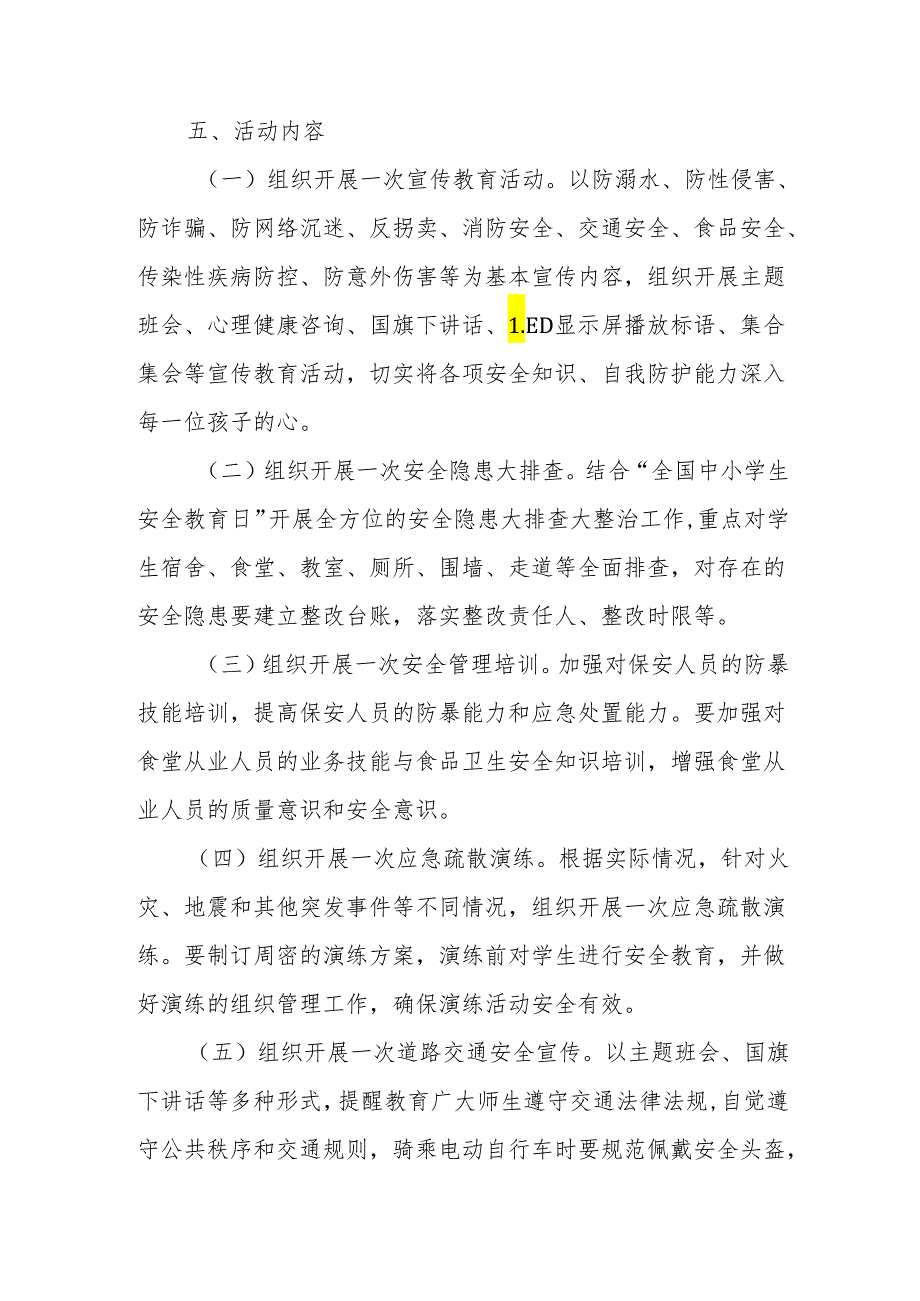 五、活动内容
（一）组织开展一次宣传教育活动。以防溺水、防性侵害、
防诈骗、防网络沉迷、反拐卖、消防安全、交通安全、食品安全、
传染性疾病防控、防意外伤害等为基本宣传内容，组织开展主题
班会、心理健康咨询、国旗下讲话、1.ED显示屏播放标语、集合
集会等宣传教育活动，切实将各项安全知识、自我防护能力深入
每一位孩子的心。
（二）组织开展一次安全隐患大排查。结合“全国中小学生
安全教育日”开展全方位的安全隐患大排查大整治工作,重点对学
生宿舍、食堂、教室、厕所、围墙、走道等全面排查，对存在的
安全隐患要建立整改台账，落实整改责任人、整改时限等。
（三）组织开展一次安全管理培训。加强对保安人员的防暴
技能培训，提高保安人员的防暴能力和应急处置能力。要加强对
食堂从业人员的业务技能与食品卫生安全知识培训，增强食堂从
业人员的质量意识和安全意识。
（四）组织开展一次应急疏散演练。根据实际情况，针对火
灾、地震和其他突发事件等不同情况，组织开展一次应急疏散演
练。要制订周密的演练方案，演练前对学生进行安全教育，并做
好演练的组织管理工作，确保演练活动安全有效。
（五）组织开展一次道路交通安全宣传。以主题班会、国旗
下讲话等多种形式，提醒教育广大师生遵守交通法律法规,自觉遵
守公共秩序和交通规则，骑乘电动自行车时要规范佩戴安全头盔，